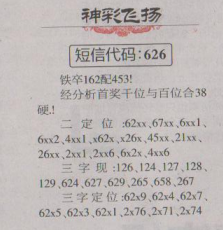 神彩飞扬
短信代码:626
铁卒162配453!
经分析首奖千位与百位合38
硬.!
二定位:62xx,67xx,6xx1,
6xx2,4xx1,x62x,x26x,45xx,21xx,
26xx,2xx1,2xx6,6x2x,4xx6
三字现:126,124,127,128,
129,624,627,629,265,658,267
三字定位:62x9,62x4,62x7,
62x5,62x3,62x1,2x76,2x71,2x74